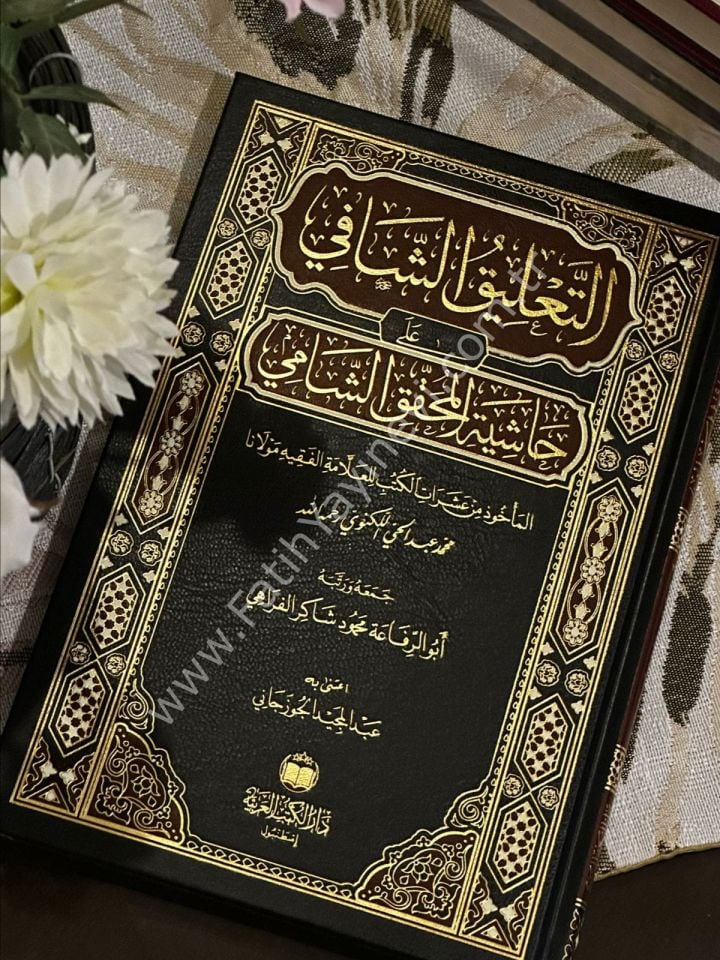 التَّعْلِيقُ الشَّافِي
عَلَى
حَاشِيَةِ الْمُحَقِّقِ الشَّامِي
المَأخُوذ مِنْ عَشَرَاتِ الكُتُبِ لِلعَلَّامَةِ الفَقِيهِ مَوْلَانَا
محمد عبد الحي اللكنوي رحمه الله
جَمَعَهُ وَرَتَّبَهُ
أَبُو الرِّفَاعَة مَحْمُود شَاكِر الفَرَاهِي
اعتنى به
عَبْدُ المَجِيد الجُوزجَاني
دَارُ الكُتُبِ العَرَبِيَّة
إسطنبول
www.FatihYayinevi.com.tr